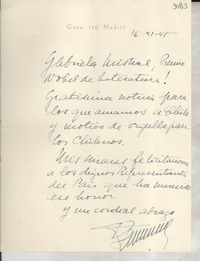 3083
Goya 116 Madrid
16-XI-45
Gabriela Mistral, Premio
Nobel de Literatura!
Gratísima noticia para
los que amamos a Chile
y motivo de orgullo para
los Chilenos.
Mis sinceras felicitaciones
a los dignos Representantes
del País que ha merecido
ese honor
y un cordial abrazo